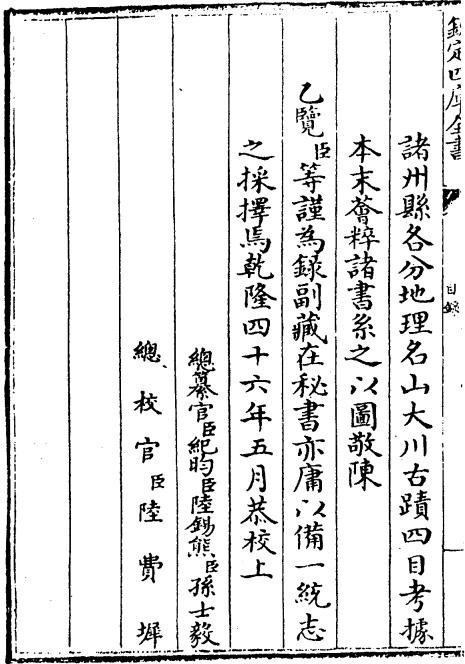 欽定四庫全書
目錄
諸州縣各分地理名山大川古蹟四目考據
本末薈粹諸書系之以圖敬陳
乙覽臣等謹為錄副藏在秘書亦庸以備一統志
之採擇焉乾隆四十六年五月恭校上
總纂官臣紀昀臣陸錫熊臣孫士毅
總校官臣陸費墀